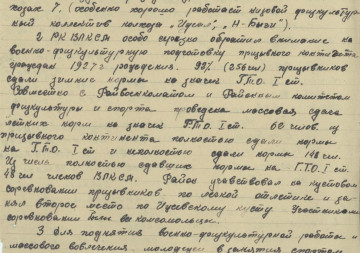 колхозе 7. (особенно хорошо работает низовой физкультур-
ный коллектив колхоза "Идеал", "Н-Быги").
2 РК ВЛКСМ особо серьезно обратил внимание на
военно-физкультурную подготовку призывного контингента
граждан 1927 г. рождения. 92% (256 чел) призывников
сдали зимние нормы на значок Г.Т.О. I ст.
Совместно с Райвоенкоматом и Районным комитетом
физкультуры и спорта проведена массовая сдача
летних норм на значок Г.Т.О. I ст. 62 чел. из
призывного контингента, полностью сдали нормы
на Г.Т.О. I ст и неполностью сдали нормы 148 чел.
Из числа полностью сдавших нормы на Г.Т.О. I ст.
48 чел членов ВЛКСМ. Район участвовал на кустовом
соревновании призывников по легкой атлетике и за-
нял второе место по Ижевскому кусту. Участниками
соревнования были все комсомольцы.
3 Для поднятия военно-физкультурной работы и
массового вовлечения молодежи в занятия спортом